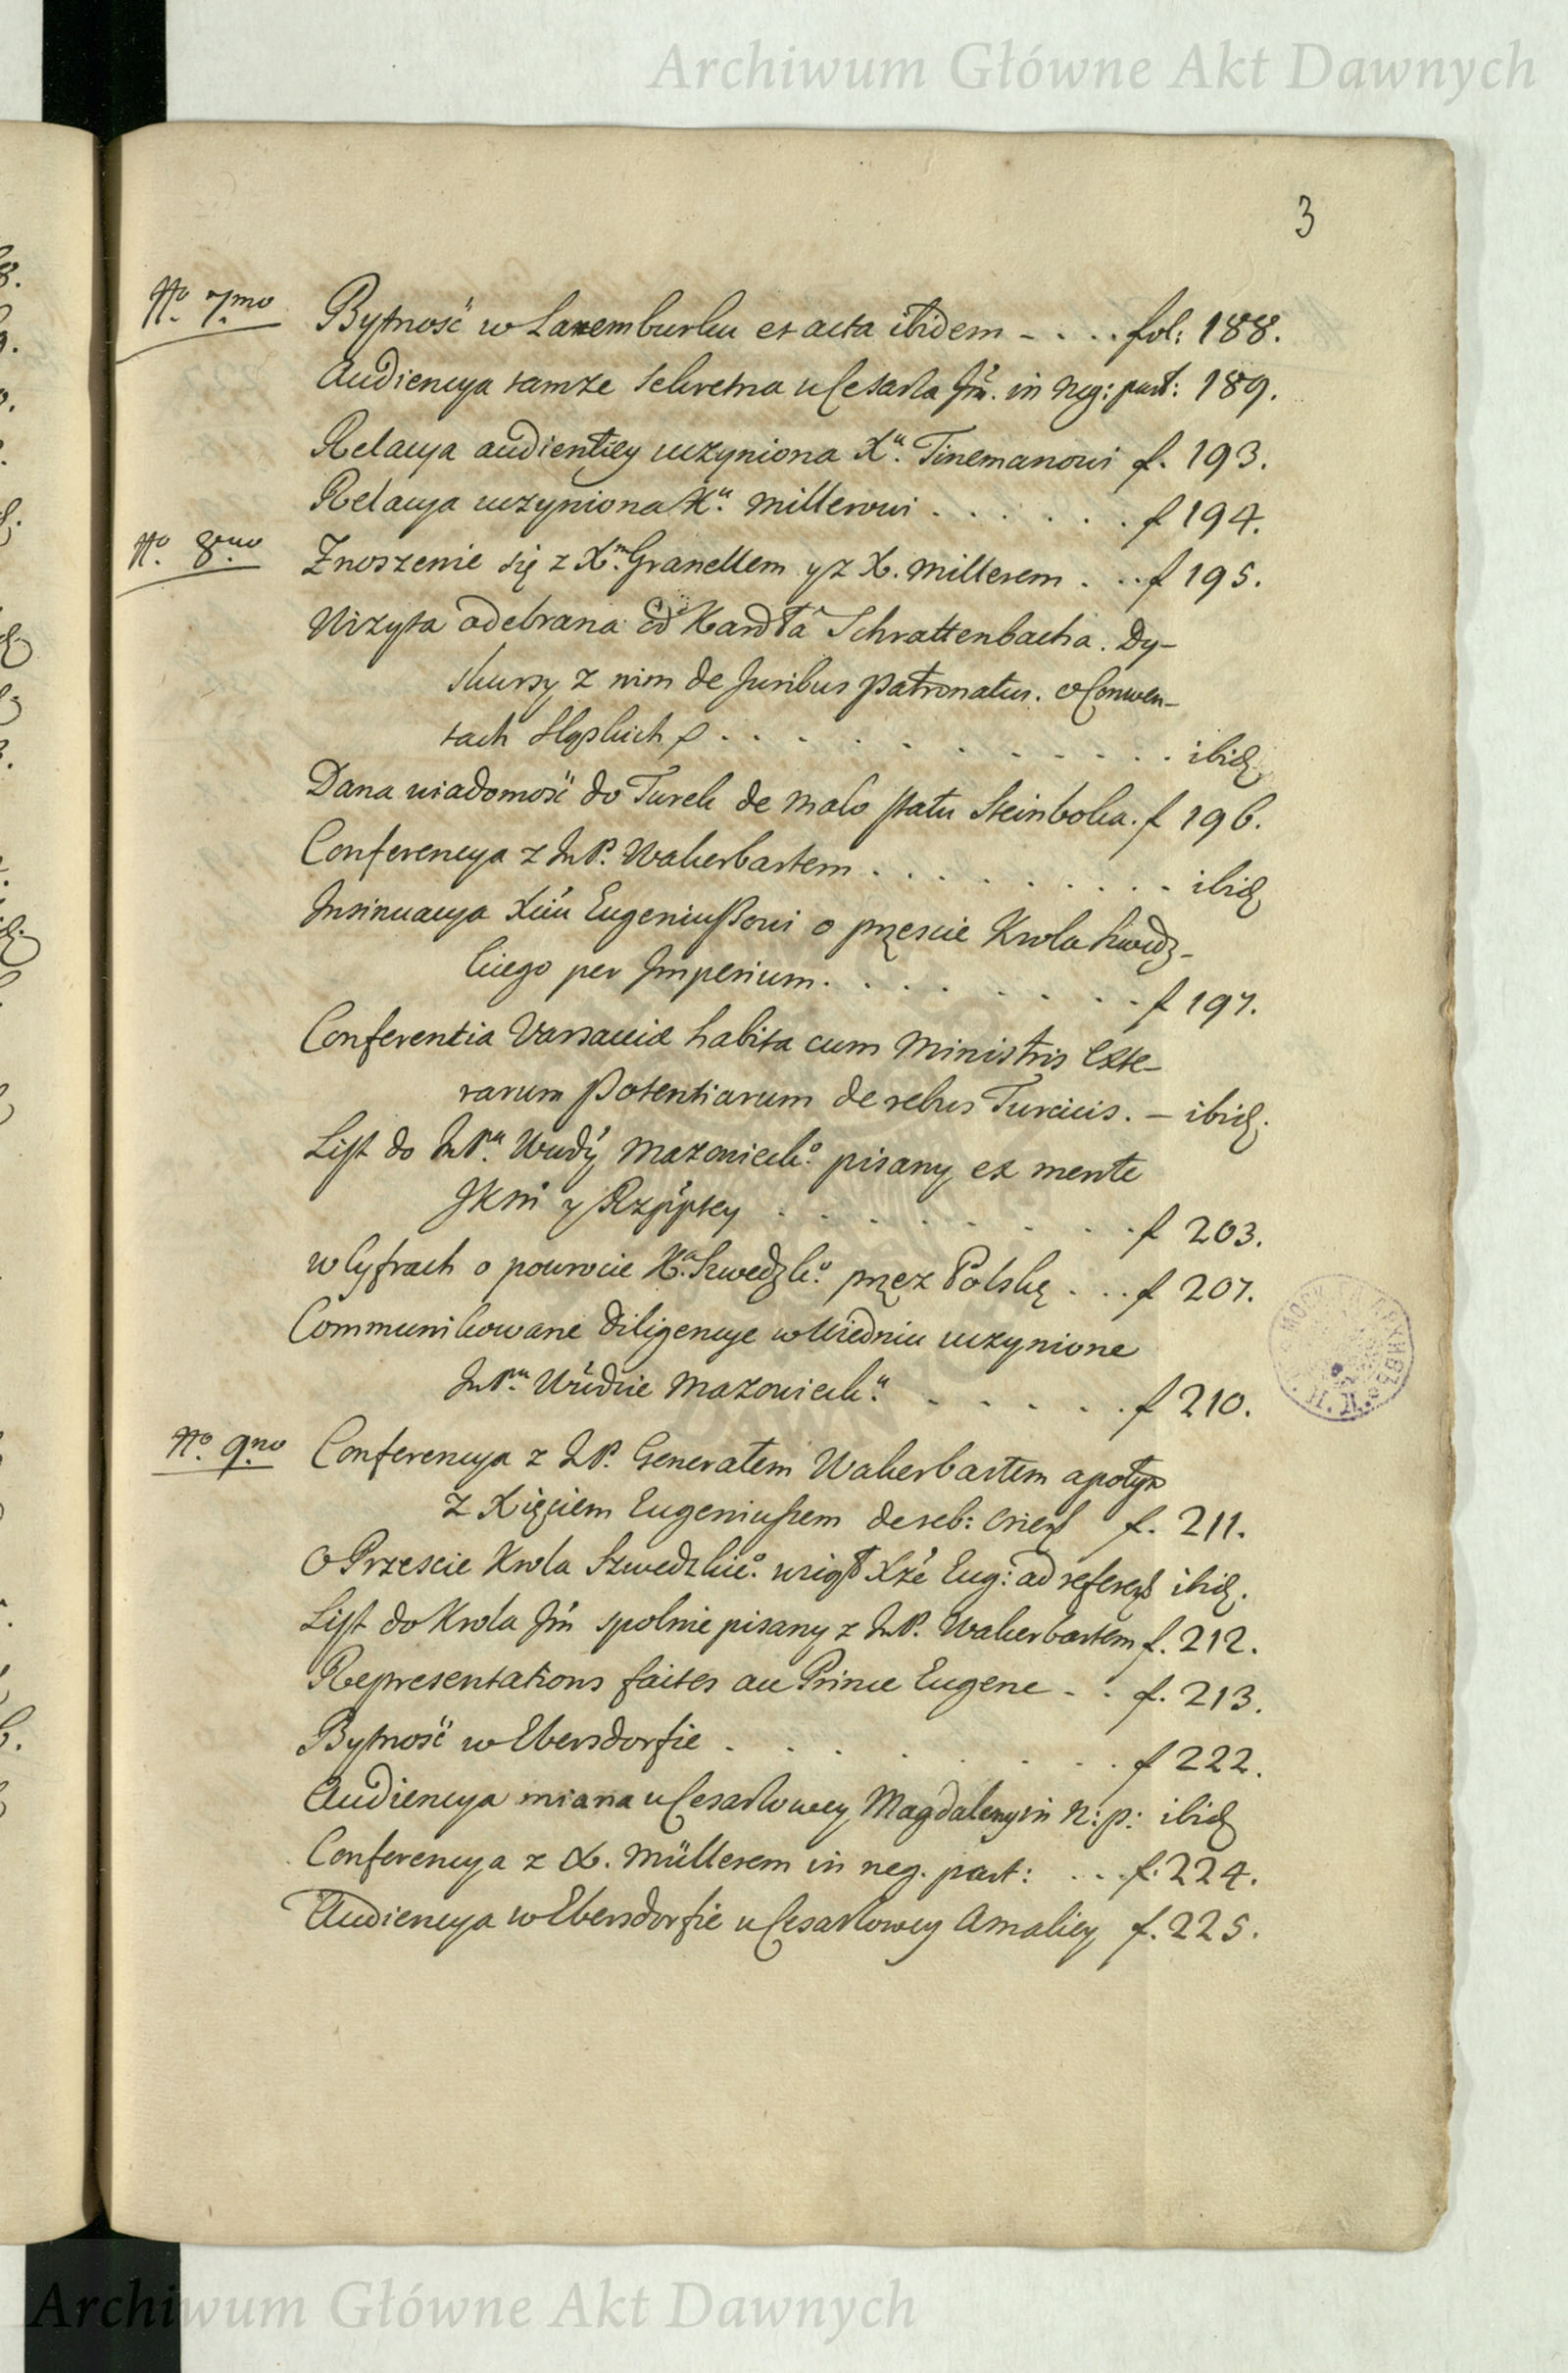 Archiwum Główne Akt Dawnych
3
No. 7.mo Bytność w Laxemburku et acta ibidem - . . . fol: 188.
Audiencya tamże sekretna u Cesarza Jm̃. in neg: part: 189.
Relacya audientiey uczyniona Xu. Tinemanowi f. 193.
Relacya uczyniona Xu. Millerowi . . . . . . . f 194.
No. 8.vo Znoszenie się z Xm. Granellem y z X. Millerem . . . f 195.
Wizyta odebrana od Kardła Schrattenbacha. Dy-
skursy z nim de Juribus Patronatus. o Conwen-
tach Sląskich . . . . . . . . . . ibid
Dana wiadomość do Turek de malo statu Steinboka. f 196.
Conferencya z JnP. Wakerbartem . . . . . . . . . ibid
Insinuacya Xciu Eugeniuszowi o przescie Krola Szwedz-
kiego per Imperium . . . . . . . . f 197.
Conferentia Varsaviæ habita cum Ministris Exte-
rarum Potentiarum de rebus Turcicis. - ibid.
List do JnPa. Wwdy Mazowieck.o pisany ex mente
JKM y Rzpptey . . . . . . . . . f 203.
w Cyfrach o powrocie Ka. Szwedzk.o przez Polskę . . . f 207.
Communikowane diligencye w Wiedniu uczynione
JnPu. Wwdzie Mazowieck.u . . . . . . f 210.
No. 9.no Conferencya z JnP. Generałem Wakerbartem a potym
z Xięciem Eugeniuszem de reb: Orient f. 211.
O Przescie Krola Szwedzkie.o wziął Xże Eug: ad referend ibid.
List do Krola Jm̃ spolnie pisany z JnP. Wakerbartem f. 212.
Representations faites au Prince Eugene - . f. 213.
Bytność w Ebersdorfie . . . . . . . . f 222.
Audiencya miana u Cesarzowey Magdaleny in n: p: ibid
Conferencya z X. Müllerem in neg. part: . . . f. 224.
Audiencya w Ebersdorfie u Cesarzowey Amaliey f. 225.
Archiwum Główne Akt Dawnych